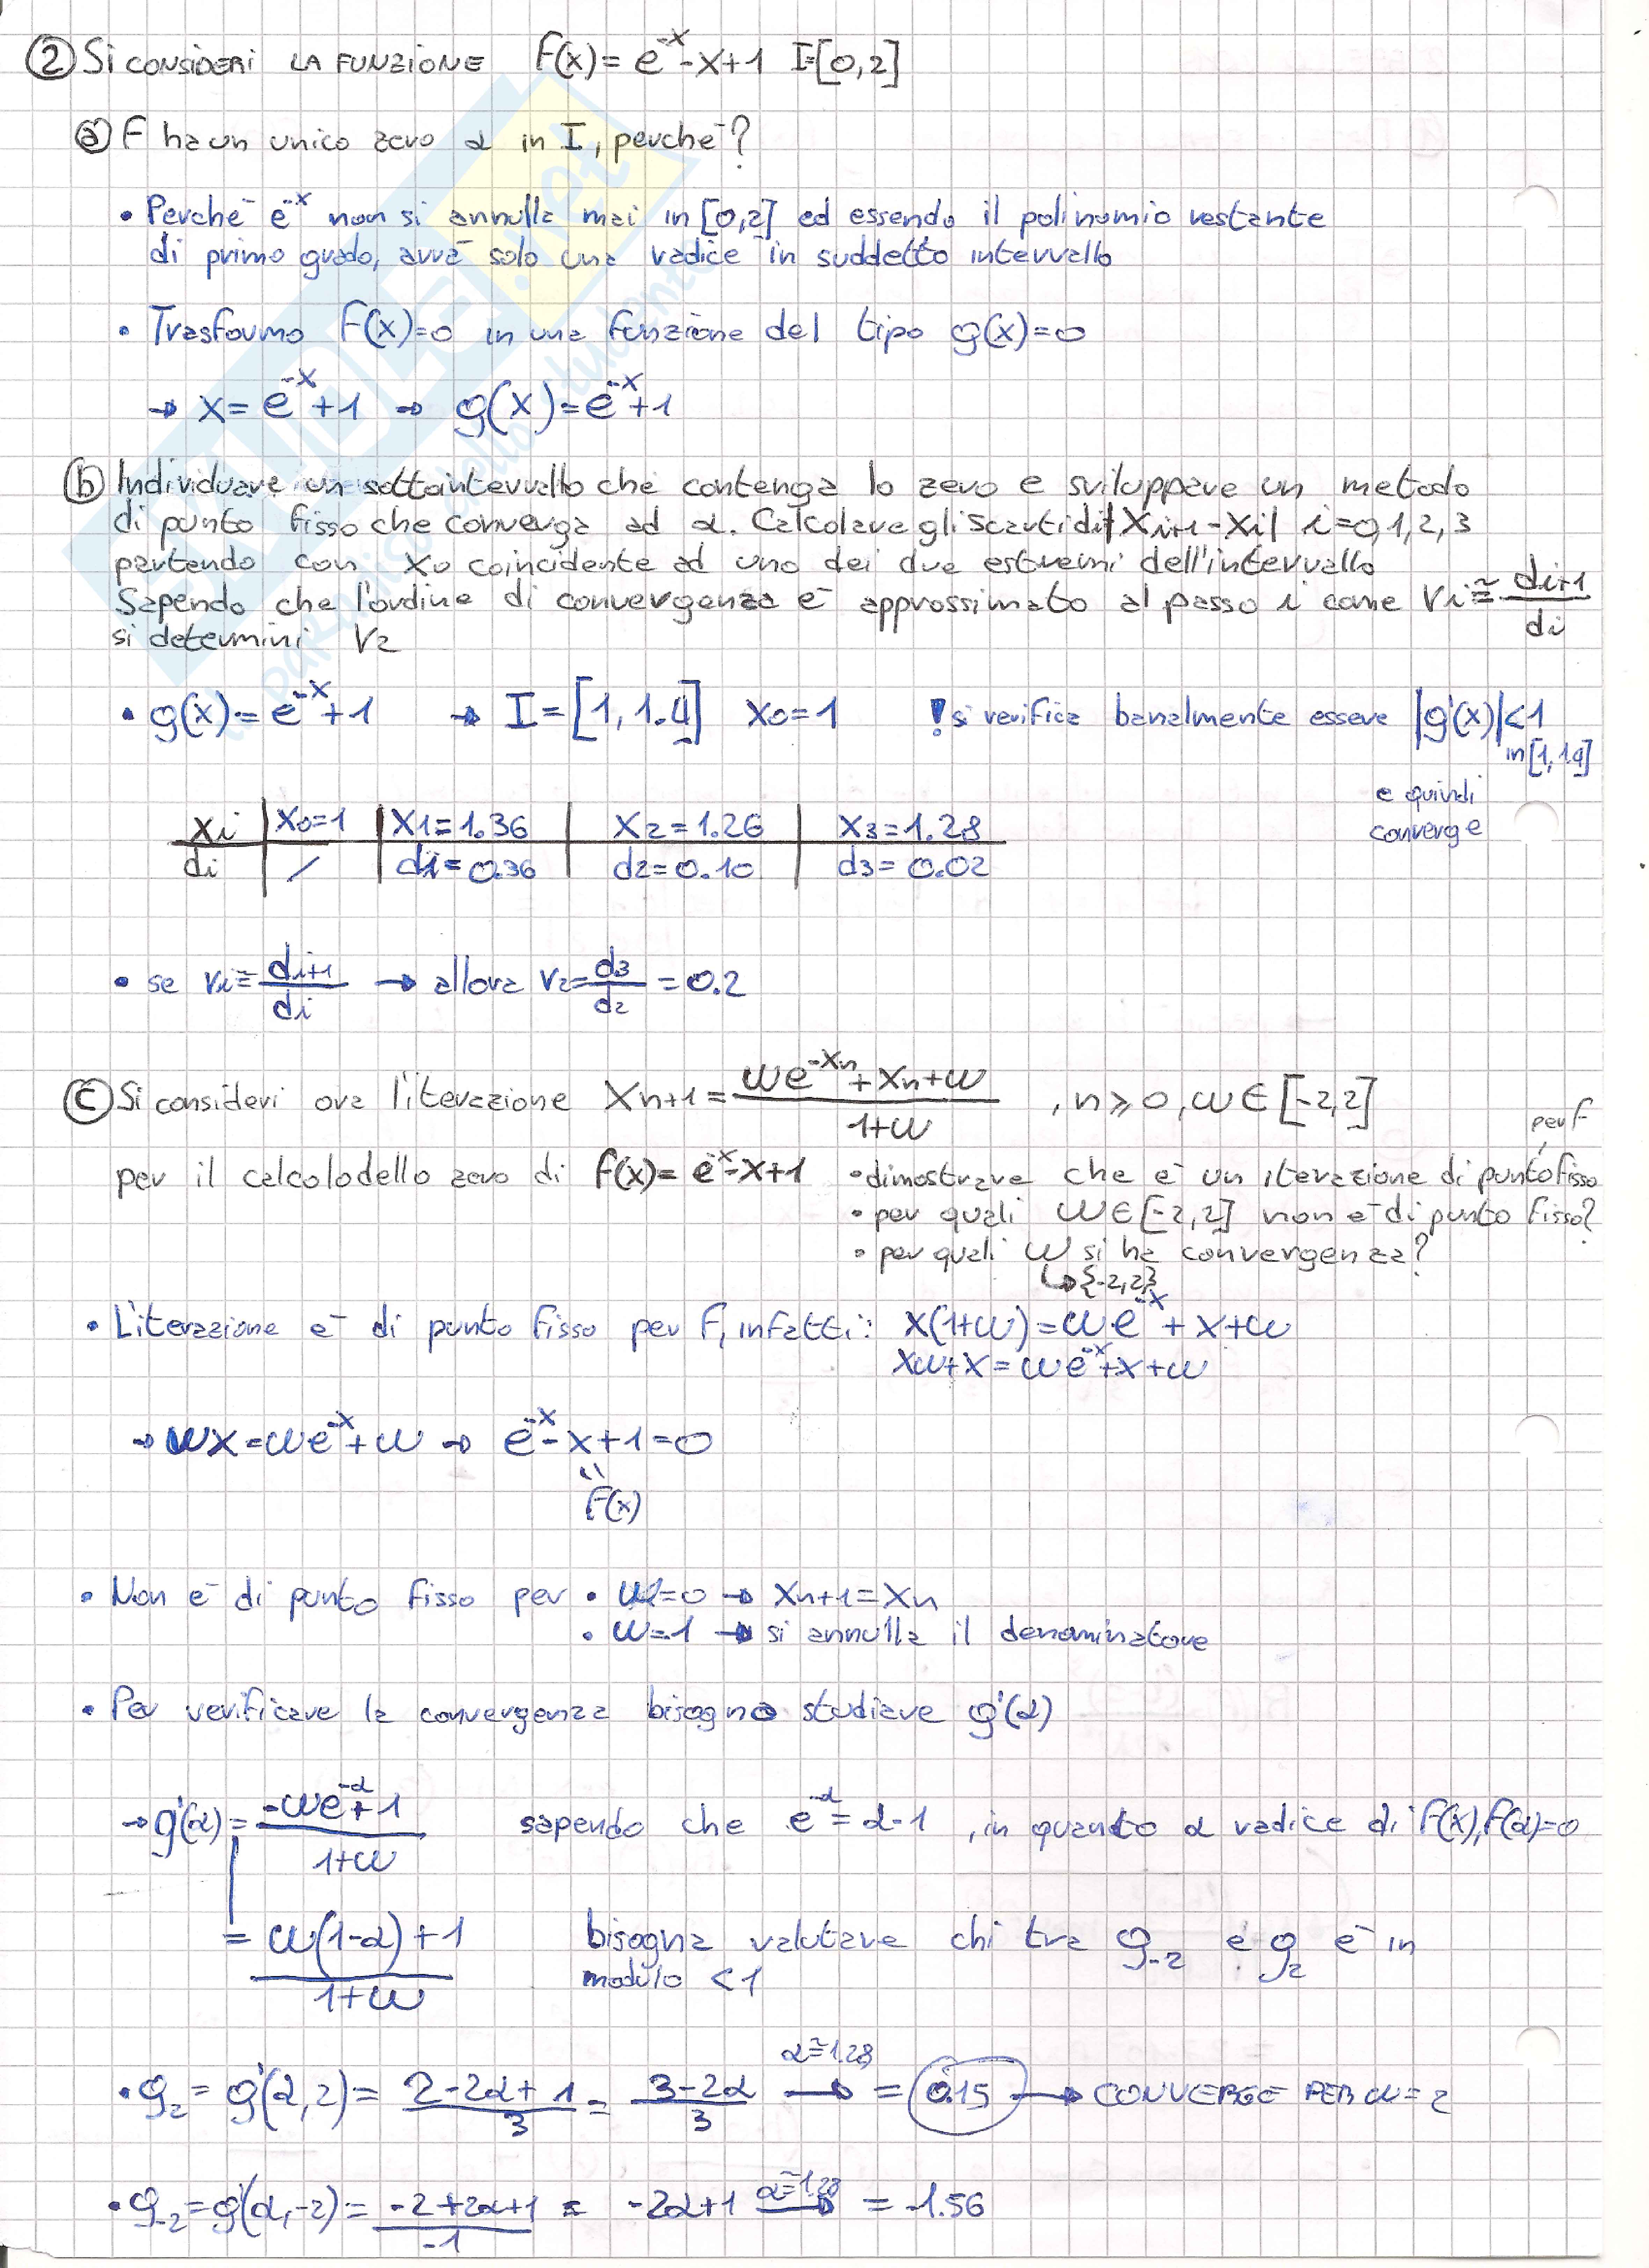 ② Si CONSIDERI LA FUNZIONE F(x)= e^-x -x+1 I=[0,2]
ⓐ F ha un unico zero α in I, perchè?
• Perchè e^-x non si annulla mai in [0,2] ed essendo il polinomio restante
di primo grado, avrà solo una radice in suddetto intervallo
• Trasformo F(x)=0 in una funzione del tipo g(x)=0
→ x= e^-x +1 → g(x)= e^-x +1
ⓑ Individuare un sottointervallo che contenga lo zero e sviluppare un metodo
di punto fisso che converga ad α. Calcolare gli scarti di |Xi+1-Xi| i=0,1,2,3
partendo con X0 coincidente ad uno dei due estremi dell'intervallo
Sapendo che l'ordine di convergenza è approssimato al passo i come ri ≅ di+1/di
si determini r2
• g(x)= e^-x +1 → I=[1,1.4] X0=1 ! si verifica banalmente essere |g'(x)|<1
in [1,1.4]
e quindi
converge
xi | X0=1 | X1=1.36 | X2=1.26 | X3=1.28
di | / | d1=0.36 | d2=0.10 | d3=0.02
• se ri ≅ di+1/di → allora r2= d3/d2 = 0.2
ⓒ Si consideri ora l'iterazione Xn+1= (ωe^-Xn + Xn+ω)/(1+ω) , n≥0, ω∈[-2,2]
per F
per il calcolo dello zero di F(x)= e^-x -x+1 • dimostrare che è un iterazione di punto fisso
• per quali ω∈[-2,2] non è di punto fisso?
• per quali ω si ha convergenza?
↳{-2,2}
• L'iterazione è di punto fisso per F, infatti: x(1+ω)=ωe^-x + x+ω
xω+x= ωe^-x +x+ω
→ ωx=ωe^-x +ω → e^-x -x+1=0
"
F(x)
• Non è di punto fisso per • ω=0 → Xn+1=Xn
• ω=-1 → si annulla il denominatore
• Per verificare la convergenza bisogna studiare g'(α)
→ g'(α)= (-ωe^-α +1)/(1+ω) sapendo che e^-α = α-1 , in quanto α radice di F(x), F(α)=0
= (ω(1-α)+1)/(1+ω) bisogna valutare chi tra g-2 e g2 è in
modulo <1
• g2= g'(α,2)= (2-2α+1)/3 = (3-2α)/3 α≅1.28 → = 0.15 → CONVERGE PER ω=2
• g-2=g'(α,-2)= (-2+2α+1)/-1 = -2α+1 α≅1.28 → = -1.56